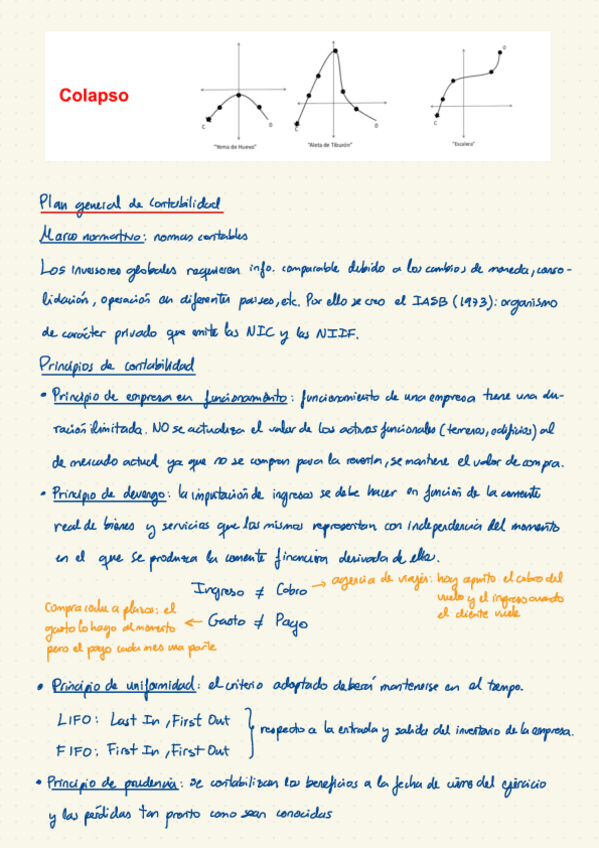 Colapso
C
D
C
D
C
D
"Yema de Huevo"
"Aleta de Tiburón"
"Escalera"
Plan general de contabilidad
Marco normativo: normas contables
Los inversores globales requieren info. comparable debido a los cambios de moneda, conso-
lidación, operación en diferentes países, etc. Por ello se creo el IASB (1973): organismo
de carácter privado que emite las NIC y las NIIF.
Principios de contabilidad
• Principio de empresa en funcionamiento: funcionamiento de una empresa tiene una du-
ración ilimitada. NO se actualiza el valor de los activos funcionales (terrenos, edificios) al
de mercado actual ya que no se compran para la reventa, se mantiene el valor de compra.
• Principio de devengo: la imputación de ingresos se debe hacer en función de la corriente
real de bienes y servicios que los mismos representan con independencia del momento
en el que se produzca la corriente financiera derivada de ellos.
Ingreso ≠ Cobro → agencia de viajes: hoy apunto el cobro del
vuelo y el ingreso cuando
el cliente vuele
Compra coche a plazos: el
gasto lo hago al momento
pero el pago cada mes una parte
← Gasto ≠ Pago
• Principio de uniformidad: el criterio adoptado deberá mantenerse en el tiempo.
LIFO: Last In, First Out
FIFO: First In, First Out
respecto a la entrada y salida del inventario de la empresa.
• Principio de prudencia: se contabilizan los beneficios a la fecha de cierre del ejercicio
y las pérdidas tan pronto como sean conocidas